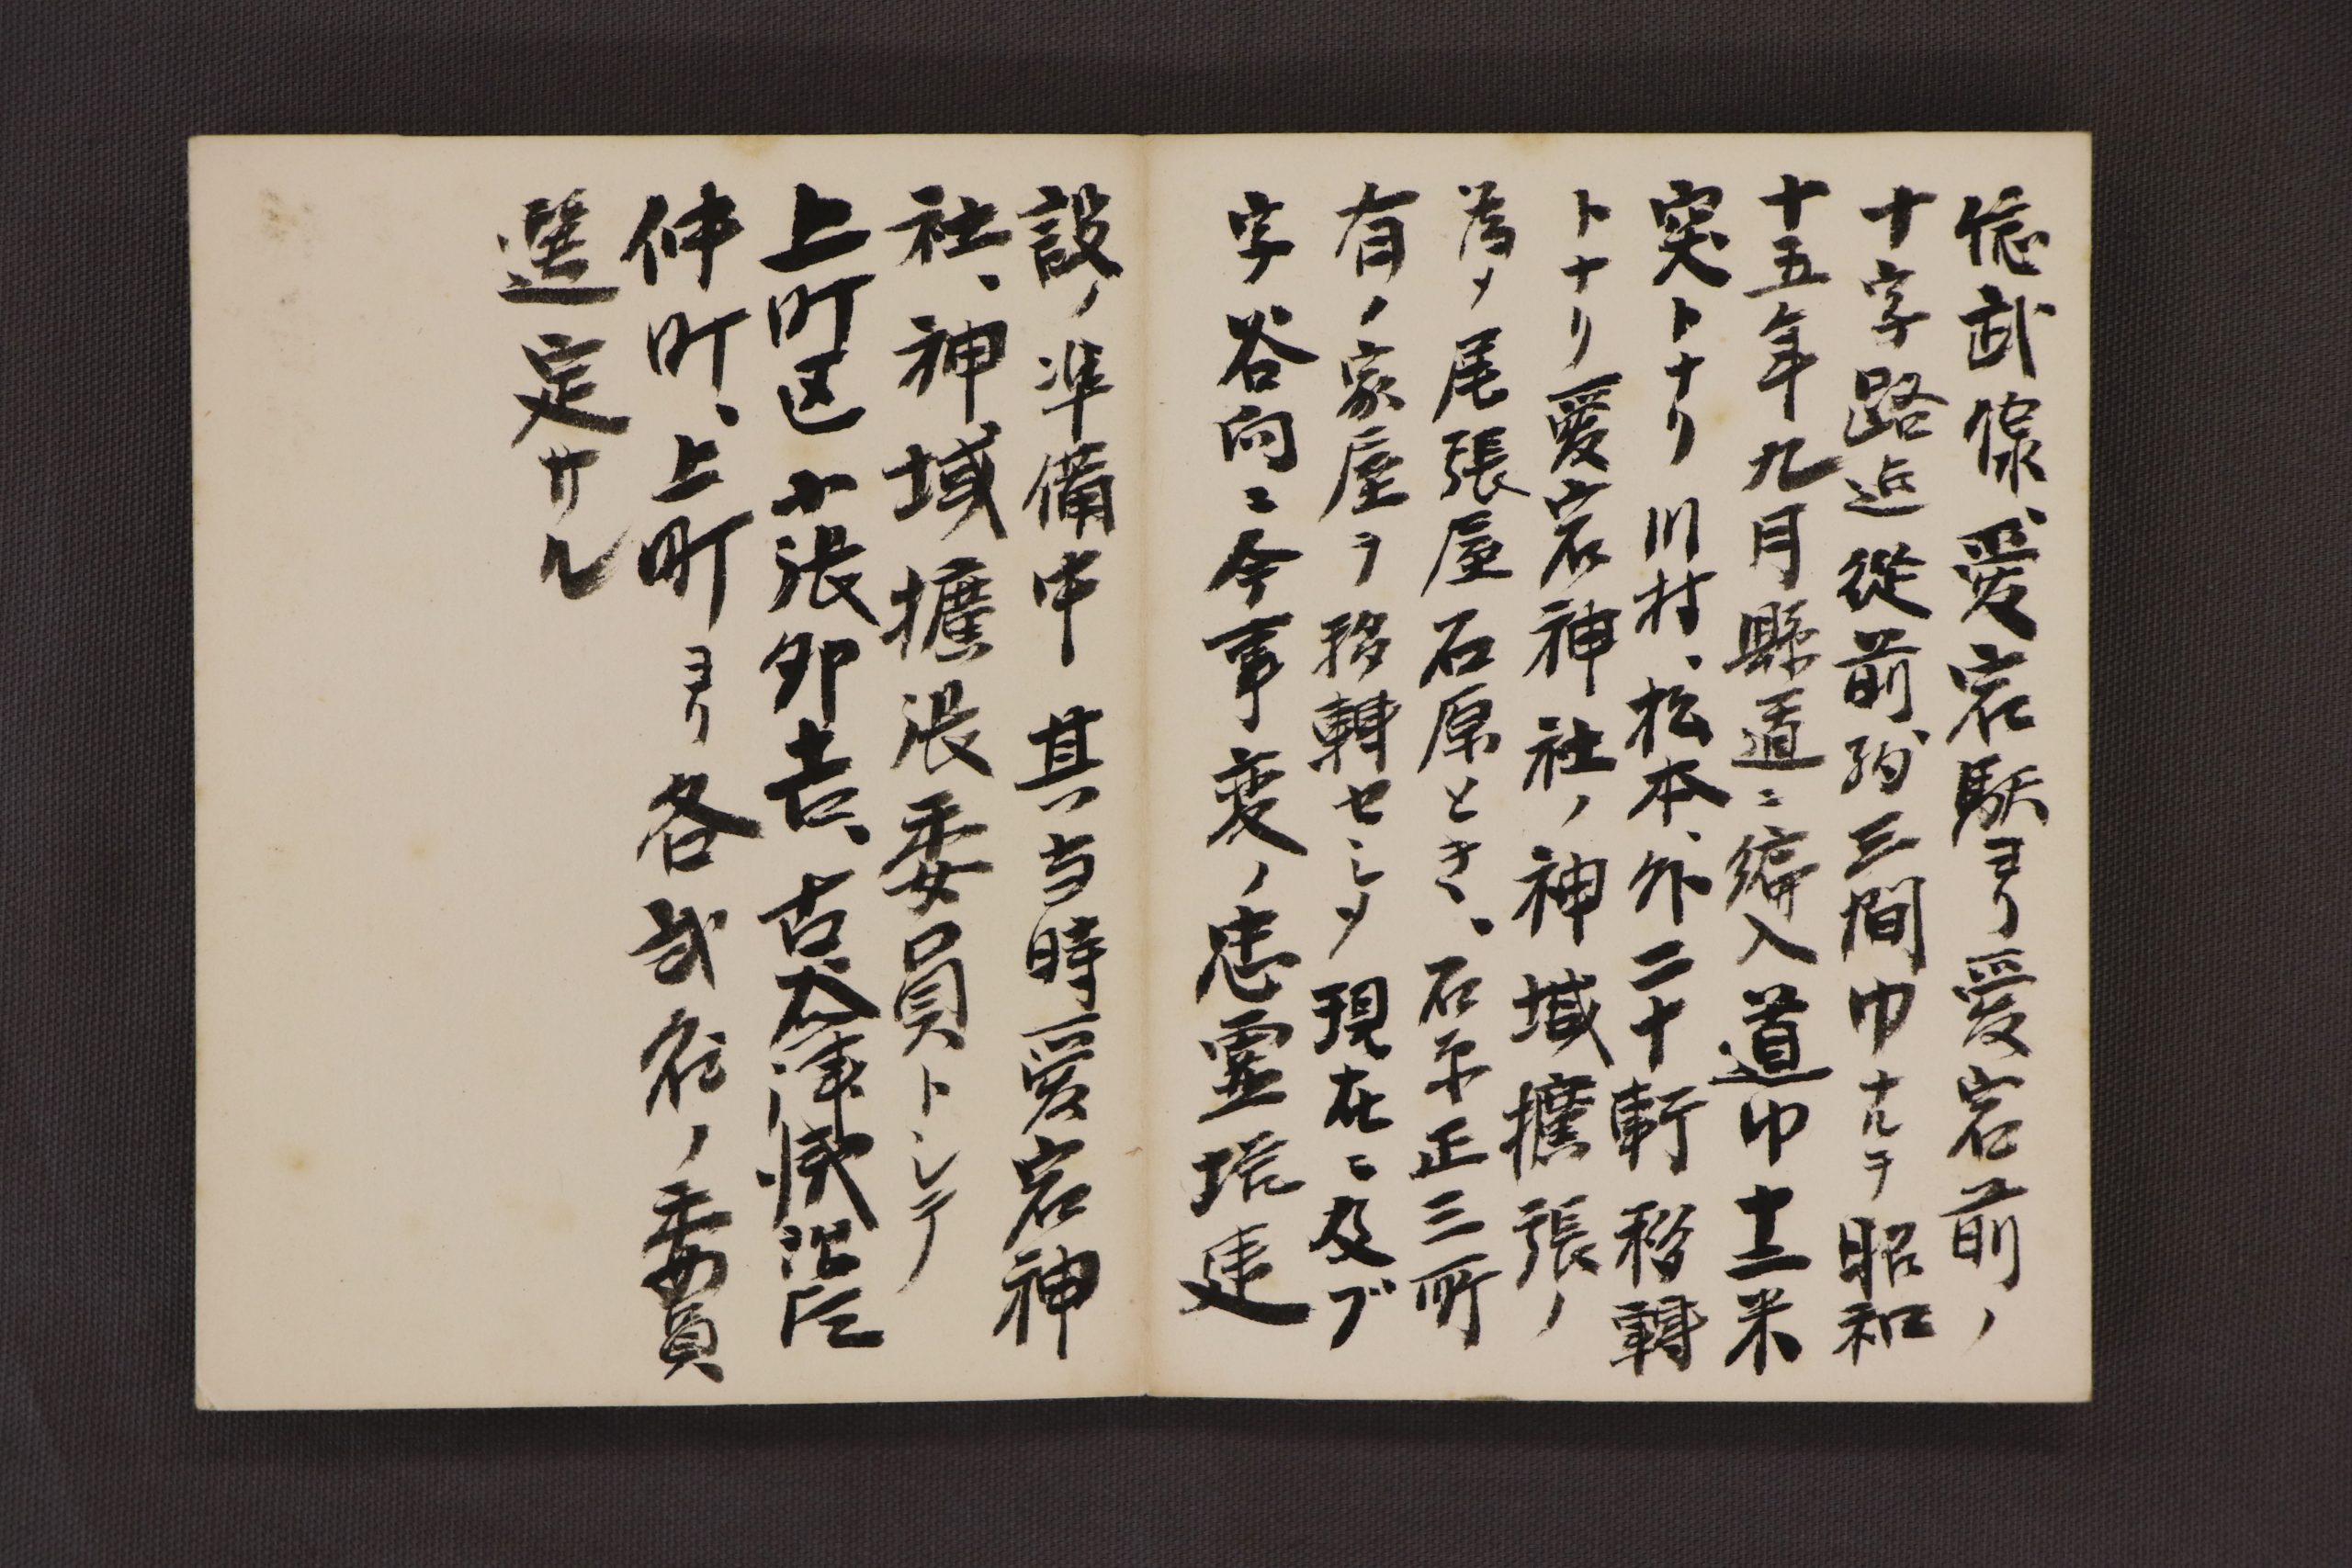 愛宕駅ヨリ愛宕前ノ
十字路迄従前約三間巾ナルヲ昭和
十五年九月縣道ニ編入道巾十二米
突トナリ川村、松本、外二十軒移轉
トナリ愛宕神社ノ神域擴張ノ
為メ尾張屋石原とき、石原正三所
有ノ家屋ヲ移轉セシメ現在ニ及ブ
字谷向ニ今事変ノ忠霊塔建
設ノ準備中其当時愛宕神
社、神域擴張委員トシテ
上町区小張卯吉、古谷津
仲町、上町ヨリ各弐名ノ委員
選定サル